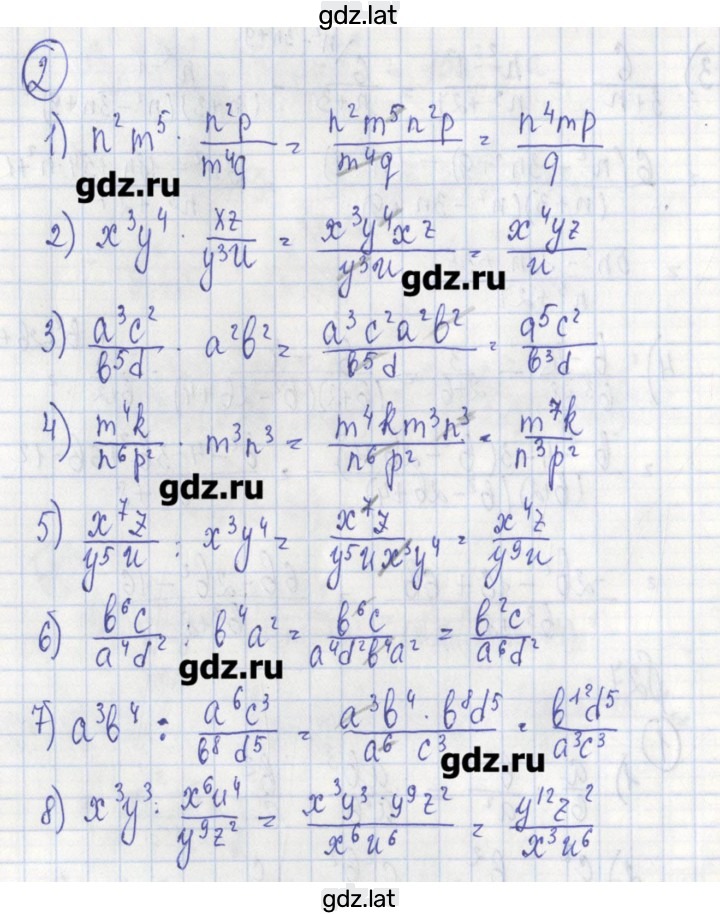 gdz.lat
2
1) n²m⁵ · n²p/m⁴q = n²m⁵n²p/m⁴q = n⁴mp/q
gdz.ru
2) x³y⁴ · xz/y³u = x³y⁴xz/y³u = x⁴yz/u
gdz.ru
3) a³c²/b⁵d · a²b² = a³c²a²b²/b⁵d = a⁵c²/b³d
4) m⁴k/n⁶p² · m³n³ = m⁴km³n³/n⁶p² = m⁷k/n³p²
gdz.ru
5) x⁷z/y⁵u : x³y⁴ = x⁷z/y⁵ux³y⁴ = x⁴z/y⁹u
6) b⁶c/a⁴d² : b⁴a² = b⁶c/a⁴d²b⁴a² = b²c/a⁶d²
gdz.ru
7) a³b⁴ : a⁶c³/b⁸d⁵ = a³b⁴ · b⁸d⁵/a⁶c³ = b¹²d⁵/a³c³
gdz.ru
8) x³y³ : x⁶u⁴/y⁹z² = x³y³ · y⁹z²/x⁶u⁶ = y¹²z²/x³u⁶
gdz.lat